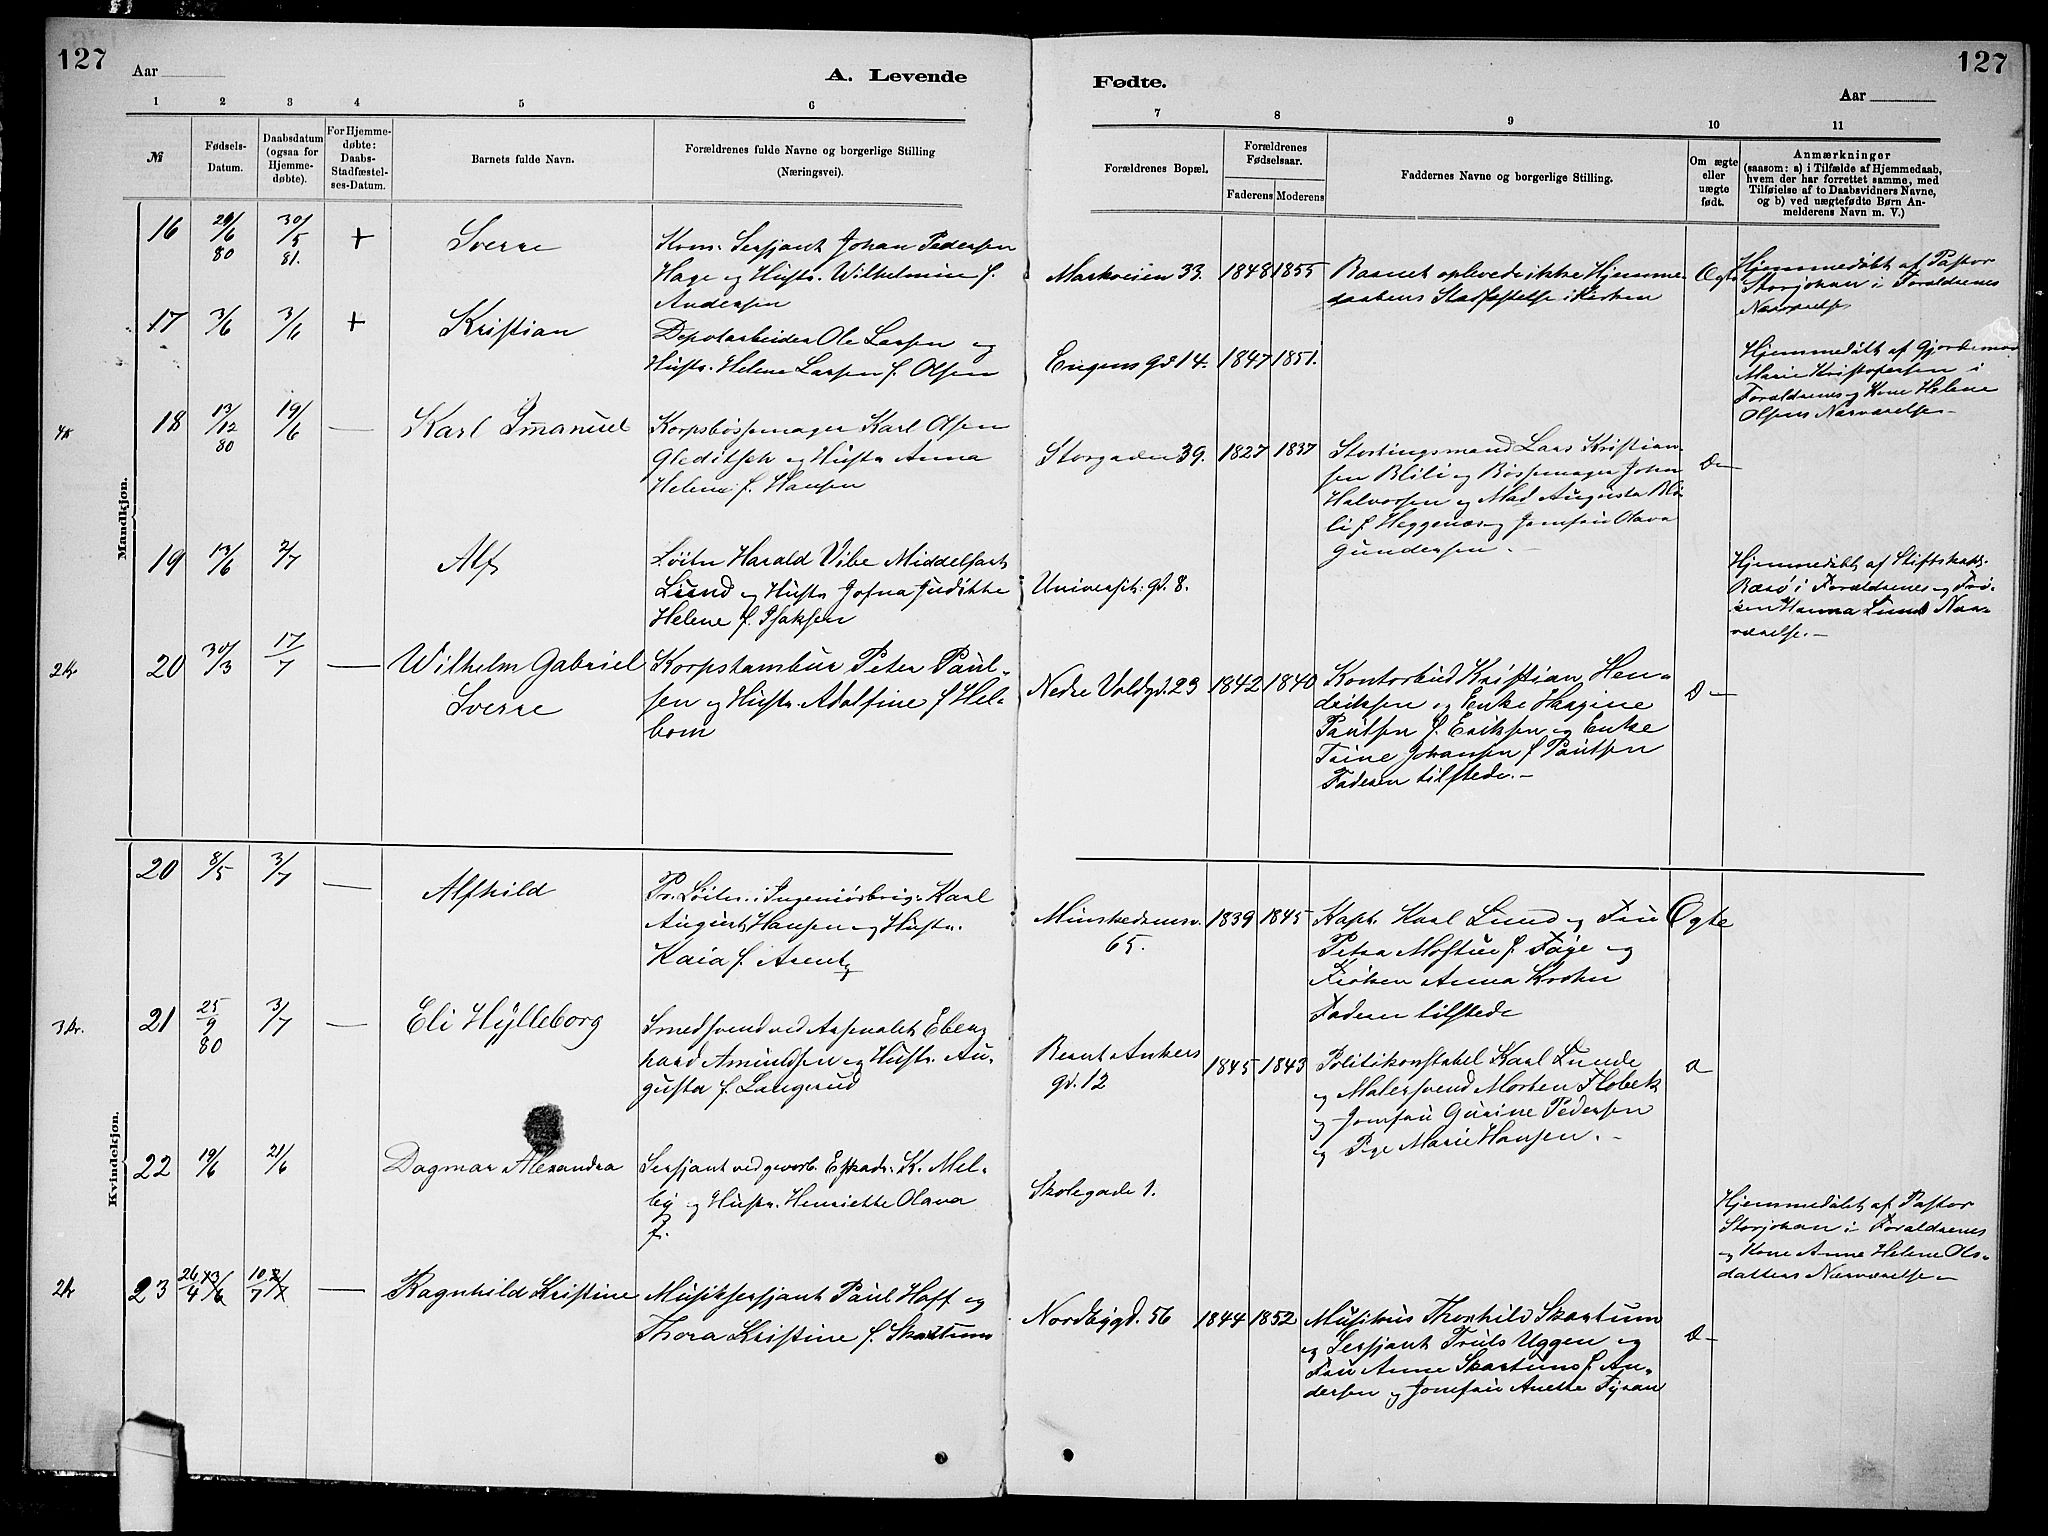 127
Aar
A. Levende
Fødte.
Aar
127
1 2 3 4 5 6 7 8 9 10 11
№
Fødsels-
Datum.
Daabsdatum
(ogsaa for
Hjemme-
døbte).
For Hjemme-
døbte:
Daabs-
Stadfæstel-
ses-Datum.
Barnets fulde Navn.
Forældrenes fulde Navne og borgerlige Stilling
(Næringsvei).
Forældrenes Bopæl.
Forældrenes
Fødselsaar.
Faderens
Moderens
Faddernes Navne og borgerlige Stilling.
Om ægte
eller
uægte
født.
Anmærkninger
(saasom: a) i Tilfælde af Hjemmedaab,
hvem der har forrettet samme, med
Tilføielse af to Daabsvidners Navne,
og b) ved uægtefødte Børn An-
melderens Navn m. V.)
Mandkjøn.
16
29/6 80
30/5 81.
+
Sverre
Kom. Sersjant Johan Pedersen
Hage og Hustr. Wilhelmine f.
Andersen
Markveien 33.
1848
1855
Barnet oplevede ikke Hjemme-
daabens Stadfæstelse i Kirken
Ægte
Hjemmedøbt af Pastor
Storjohan i Foraldrenes
Nærværelse
17
3/6
3/6
+
Kristian
Depotarbeider Ole Larsen og
Hustr. Helene Larsen f. Olsen
gd 14.
1847
1851.
Hjemmedøbt af Gjordemor
Marie Kristofersen i
Foraldrenes og Kone Helene
Olsens Nærværelse
4k
18
13/12 80
19/6
—
Karl Imanuel
Korpsbøssemager Karl Olsen
Gleditsch og Hustr Anna
Helene f. Hansen
Storgaden 39.
1827
1837
Stortingsmand Lars Kristian-
sen Blili og Bøssemager John
Halvorsen og Mad Augusta Bli-
li f. Heggenæs og Jomfru Olava
Gundersen.
D—
19
13/6
2/7
—
Alf
Løitn Harald Vibe Middelfart
Lund og Hustr Jofna Judithe
Helene f. Isaksen
Universit. gd. 8.
Hjemmedøbt af Stiftskap.
i Foraldrenes og Frø-
ken Hanna Lunds Nær-
værelse.—
2kr
20
30/3
17/7
—
Wilhelm Gabriel
Sverre
Korpstambur Peter Paul-
sen og Hustr. Adolfine f Hel-
bom
Nedre Voldgd. 23
1842
1840
Kontorbud Kristian Hen-
driksen og Enke Hargine
Paulsen f. Eriksen og Enke
Trine Johansen f Paulsen
Faderen tilstede.—
D—
Kvindekjøn.
20
8/5
3/7
—
Alfhild
Pr. Løitn. i Ingeniørbrig. Karl
August Hansen og Hustr.
Kaia f. Arentz
65.
1839
1845
Kapt. Karl Lund og Fru
Petra Moftue f. Foye og
Frøken Anna Krohn
Faderen tilstede
Ægte
3 Kr.
21
25/9 80
3/7
—
Eli Hylleborg
Smedsvend ved Arsenalet Eber-
hard Amundsen og Hustr. Au-
gusta f. Langerud
Bernt Ankers
gd. 12
1845
1843
Politikonstabel Karl Lunde
og Malersvend Morten Flobek
og Jomfru Gurine Pedersen
og Pige Marie Hansen.—
22
19/6
21/6
Dagmar Alexandra
Sersjant ved geverb. Eskadr. K. Mel-
by og Hustr. Henriette Olava
f.
Skolegade 1.
Hjemmedøbt af Pastor
Storjohan i Foraldrenes
og Kone Anne Helene Ols-
datters Nærværelse—
2k
23
26/4 13/6
10/7 2/7
—
Ragnhild Kristine
Musiksersjant Paul Hoff og
Thora Kristine f. Skartum
Nordbygd. 56
1844
1852
Musikus Thorhild Skartum
og Sersjant Truls Uggen og
Fru Anne Skartum f. An-
dersen og Jomfru Anette Fyran
D—